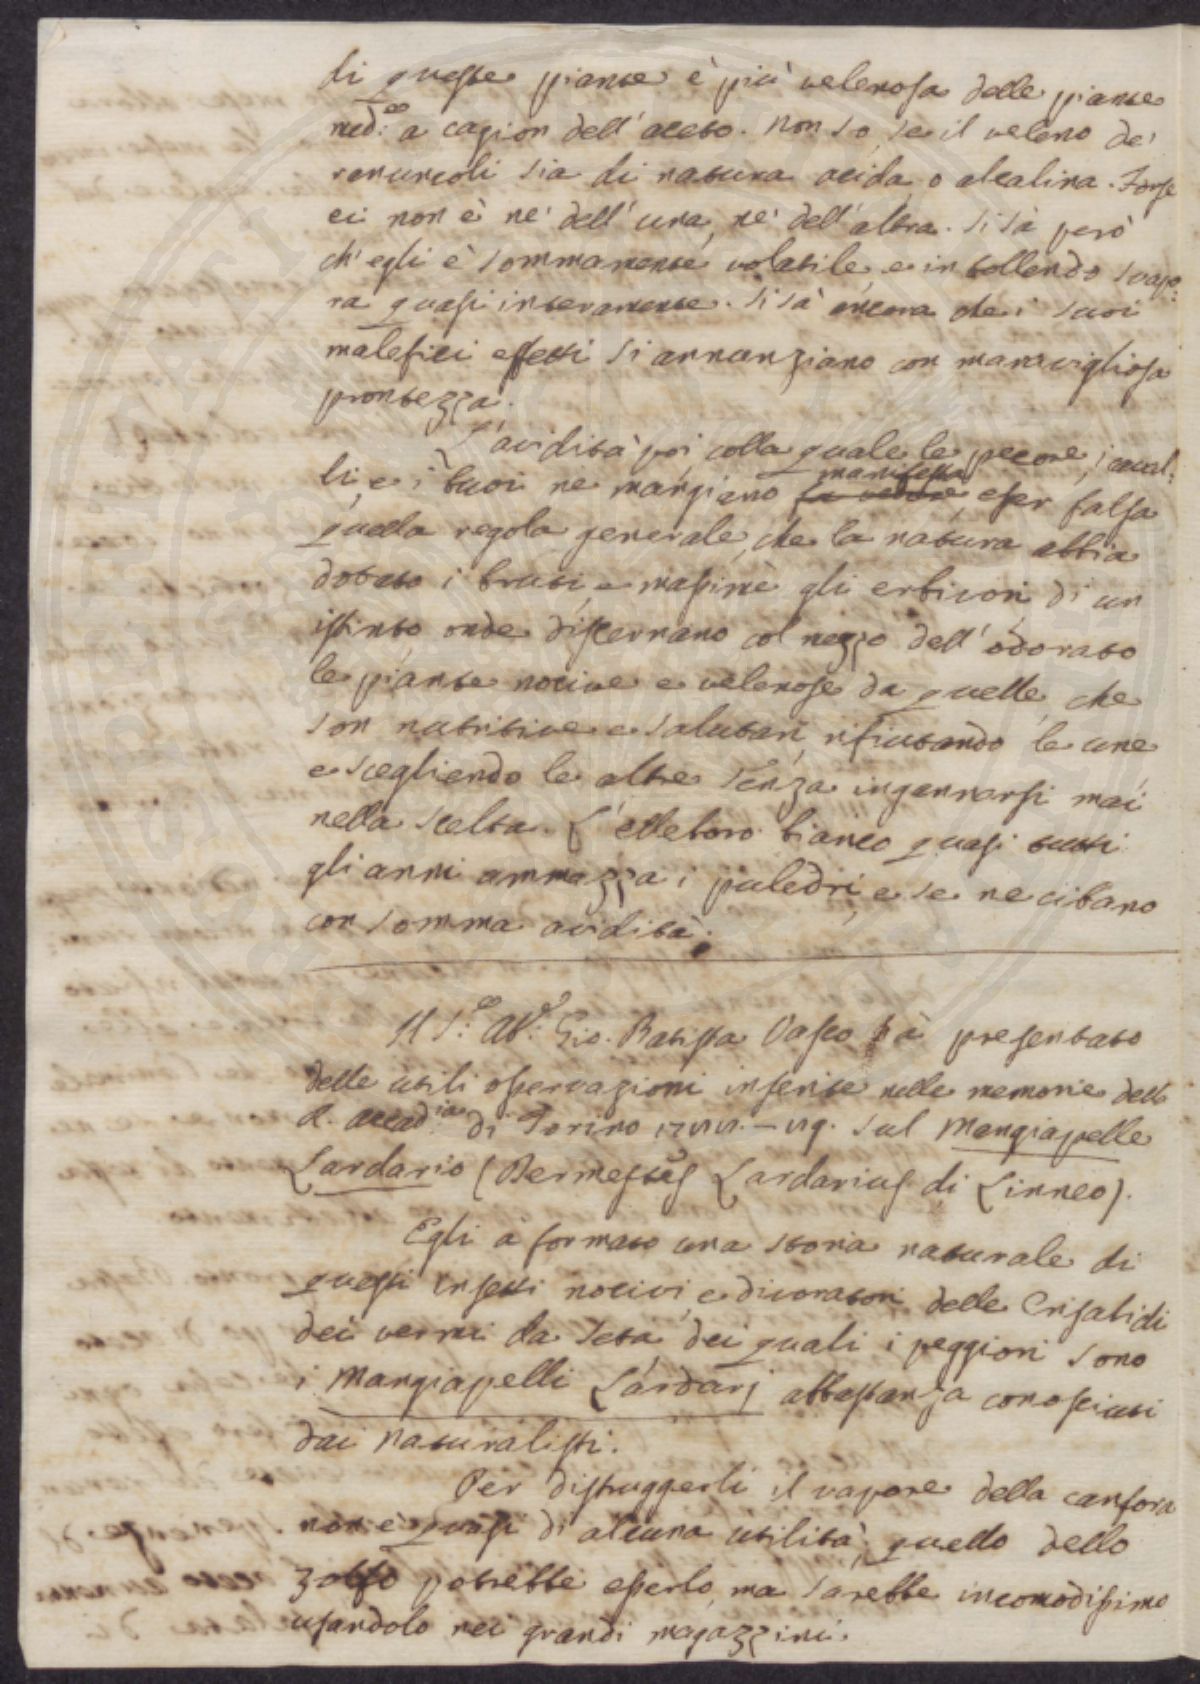 di queste piante è più velenosa delle piante
med.e a cagion dell'aceto. Non so, se il veleno de'
ranuncoli sia di natura acida, o alcalina. Forse
ei non è nè dell'una, nè dell'altra. Si sà però
ch'egli è sommamente volatile, e in bollendo svapo:
ra quasi interamente. Si sà ancora che i suoi
malefici effetti si annunziano con maravigliosa
prontezza.
L'avidità poi colla quale le pecore, i caval:
li, e i buoi ne mangiano manifesta, esser falsa
quella regola generale, che la natura abbia
dotato i bruti, e massime gli erbivori, di un
istinto, onde discernano col mezzo dell'odorato
le piante nocive e velenose da quelle, che
son nutritive e salutari, rifiutando le une
e scegliendo le altre senza ingannarsi mai
nella scelta. L'elleboro bianco quasi tutti
gli anni ammazza i puledri, e se ne cibano
con somma avidità.
Il S.e Ab.e Gio. Batista Vasco hà presentato
delle utili osservazioni inserite nelle memorie della
R. Accad.ia di Torino sul Mangiapelle
Lardario (Dermestes Lardarius di Linneo).
Egli à formato una storia naturale di
questi insetti nocivi, e divoratori delle Crisalidi
dei vermi da seta, dei quali i peggiori sono
i Mangiapelli Lardarj abbastanza conosciuti
dai Naturalisti.
Per distruggerli il vapore della canfora
non è quasi di alcuna utilità, quello dello
zolfo potrebbe esserlo, ma sarebbe incomodissimo
usandolo nei grandi magazzini.